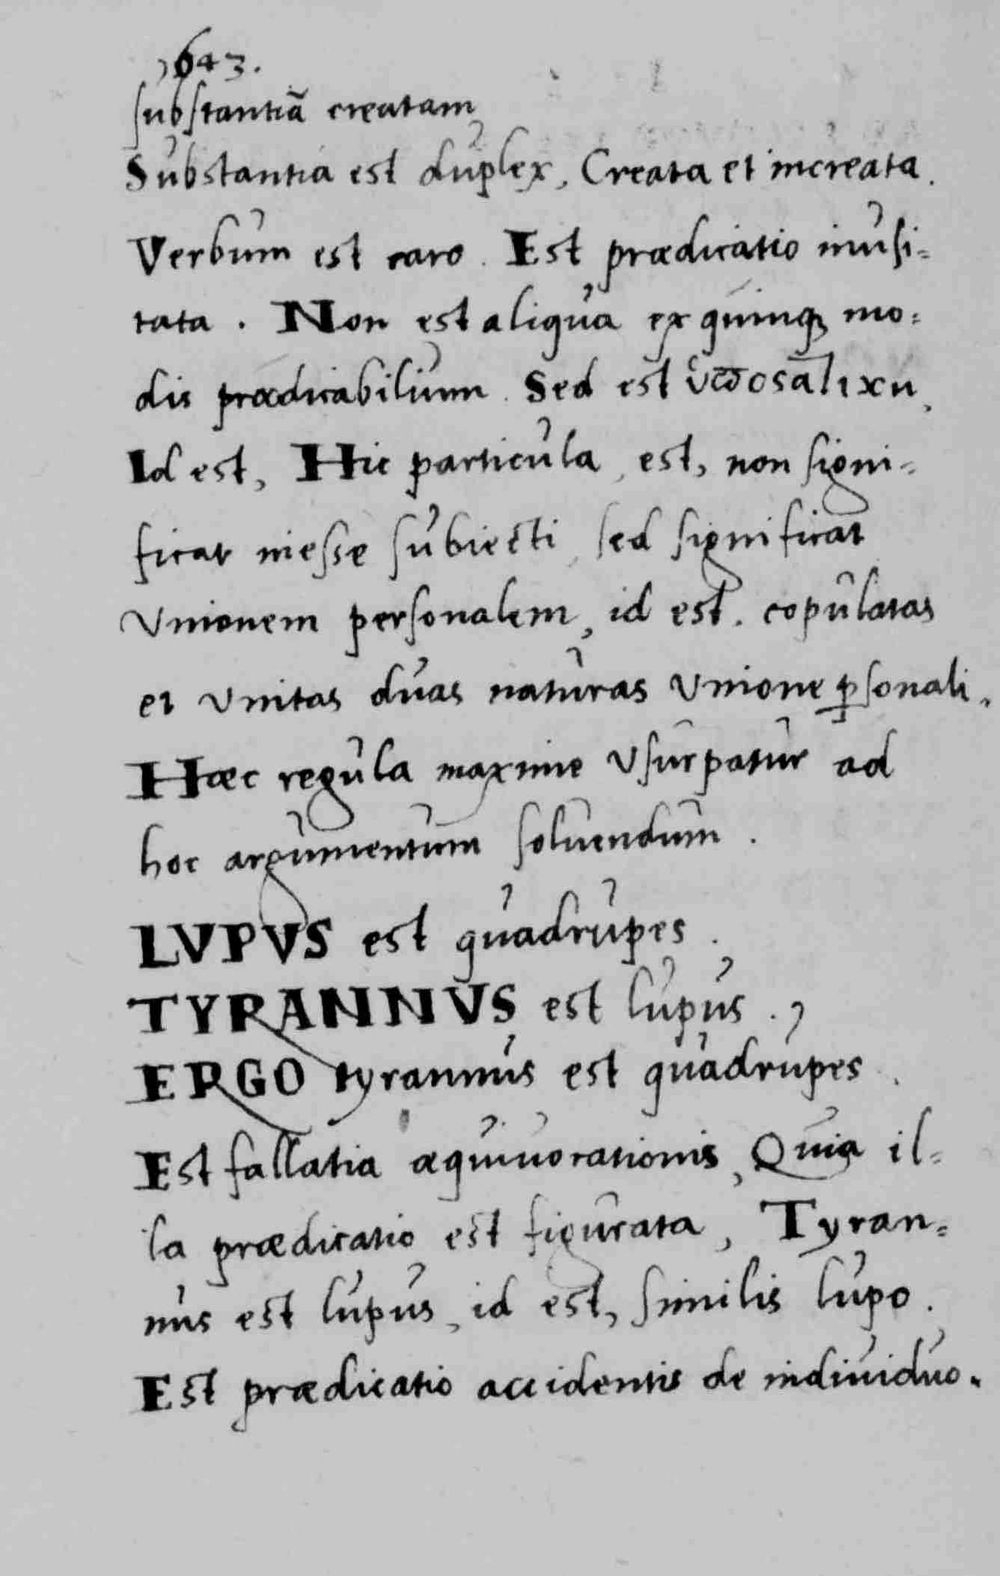 1643.
substantiā creatam
Substantia est duplex, Creata et increata.
Verbum est caro. Est prædicatio inusi=
tata. Non est aliqua ex quinqꝫ mo=
dis prædicabilium. Sed est
Id est, Hic particula, est, non signi=
ficat inesse subiecti, sed significat
Vnionem personalem, id est. copulatas
et vnitas duas naturas Vnione ꝑsonali.
Hæc regula maxime vsurpatur ad
hoc argumentum soluendum.
LVPVS est quadrupes.
TYRANNVS est lupus.
ERGO tyrannus est quadrupes.
Est fallatia æquiuocationis, Quia il=
la prædicatio est figurata, Tyran=
nus est lupus, id est, similis lupo.
Est prædicatio accidentis de indiuiduo.